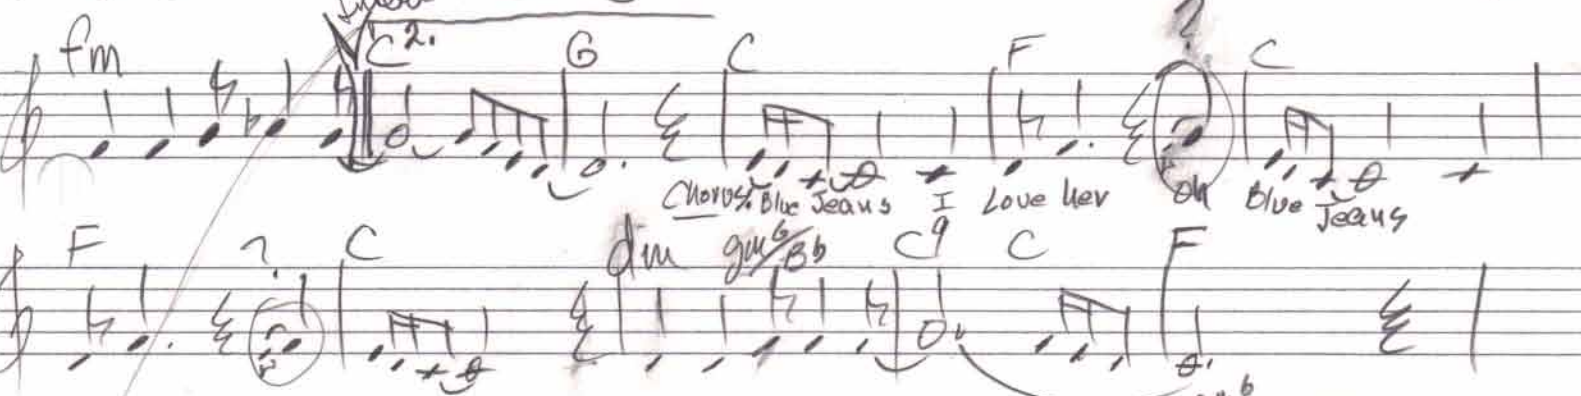 fm C 2. G C F ? C
Chorus: Blue Jeans I Love her oh Blue Jeans
F ? C dm gm6/Bb C9 C F